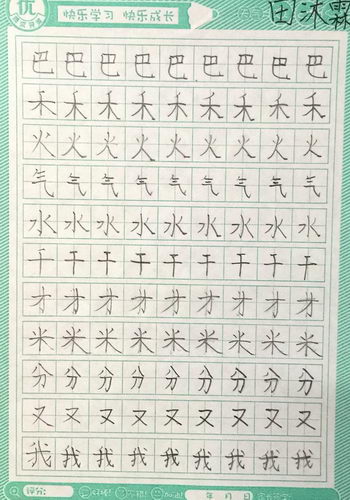 优 快乐学习 快乐成长 田沐霖
巴 巴 巴 巴 巴 巴 巴 巴 巴
禾 禾 禾 禾 禾 禾 禾 禾 禾
火 火 火 火 火 火 火 火 火
气 气 气 气 气 气 气 气 气
水 水 水 水 水 水 水 水 水
干 干 干 干 干 干 干 干 干
才 才 才 才 才 才 才 才 才
米 米 米 米 米 米 米 米 米
分 分 分 分 分 分 分 分 分
又 又 又 又 又 又 又 又 又
我 我 我 我 我 我 我 我 我
评分: 加油! 年 月 日